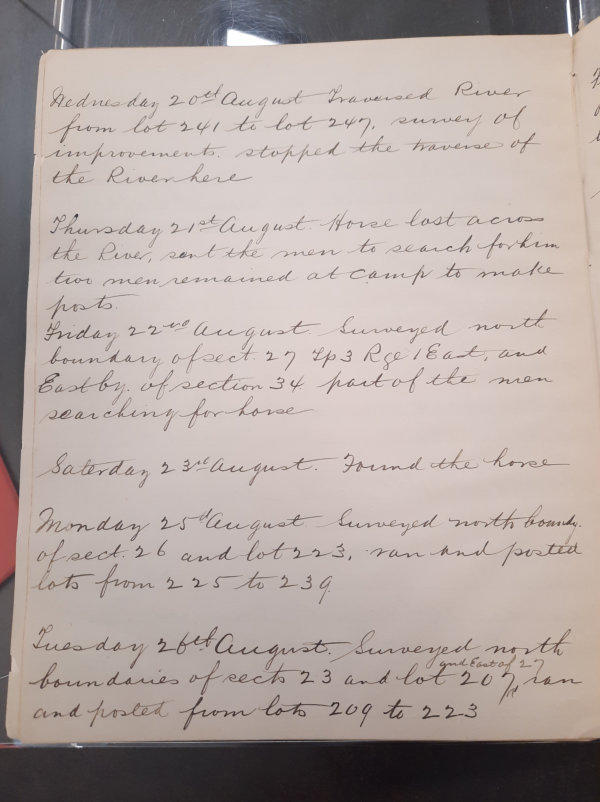 Wednesday 20th August Traversed River
from lot 241 to lot 247, survey of
improvements. stopped the traverse of
the River here
Thursday 21st August. Horse lost across
the River, sent the men to search for him
two men remained at camp to make
posts.
Friday 22nd August. Surveyed north
boundary of sect. 27 Tp3 Rge 1 East, and
East by. of section 34 part of the men
searching for horse
Saterday 23rd August. Found the horse
Monday 25d August Surveyed north boundy.
of sect. 26 and lot 223, ran and posted
lots from 225 to 239.
Tuesday 26th August. Surveyed north
and East of 27
boundaries of sects 23 and lot 207, ran
and posted from lots 209 to 223